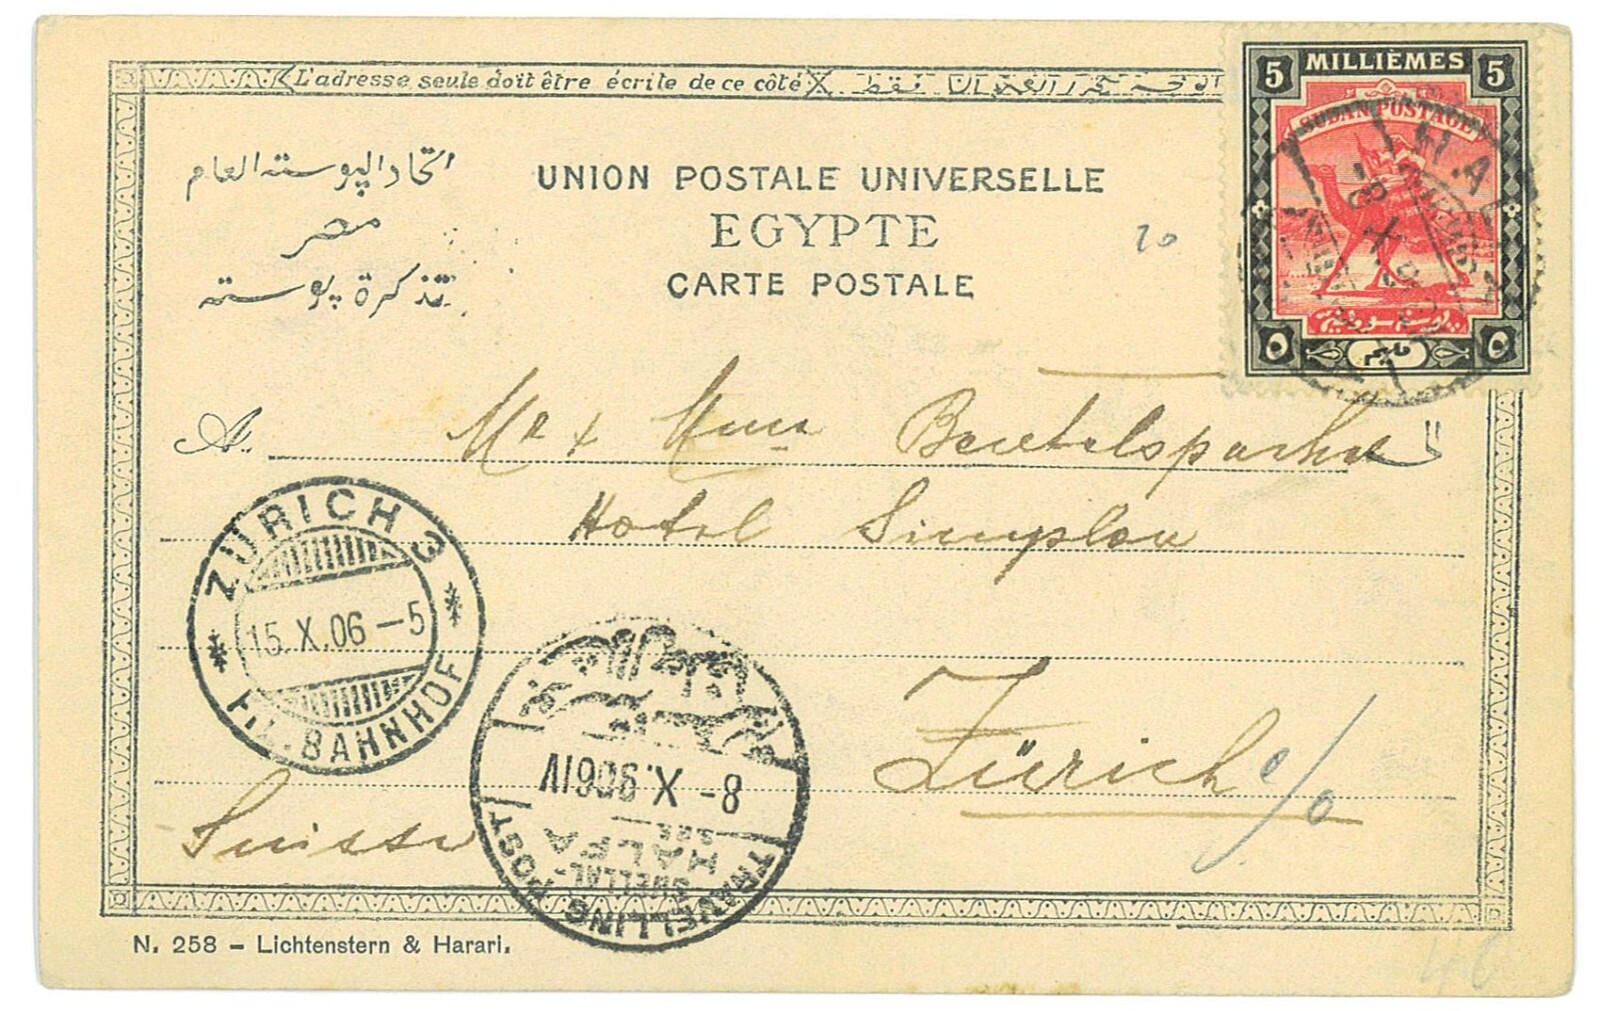 L'adresse seule doit être écrite de ce côté
5 MILLIÈMES 5
SUDAN POSTAGE
اتحاد البوسته العام
UNION POSTALE UNIVERSELLE
مصر
EGYPTE
20
تذكرة بوسته
CARTE POSTALE
٥ ٥
A. Mr & Mme
Hotel Simplon
Zürich
Suisse
ZÜRICH 3
15.X.06-5
HL. BAHNHOF
8-X.906 IV
SHELLAL-
HALFA
TRAVELLING POST
N. 258 - Lichtenstern & Harari.